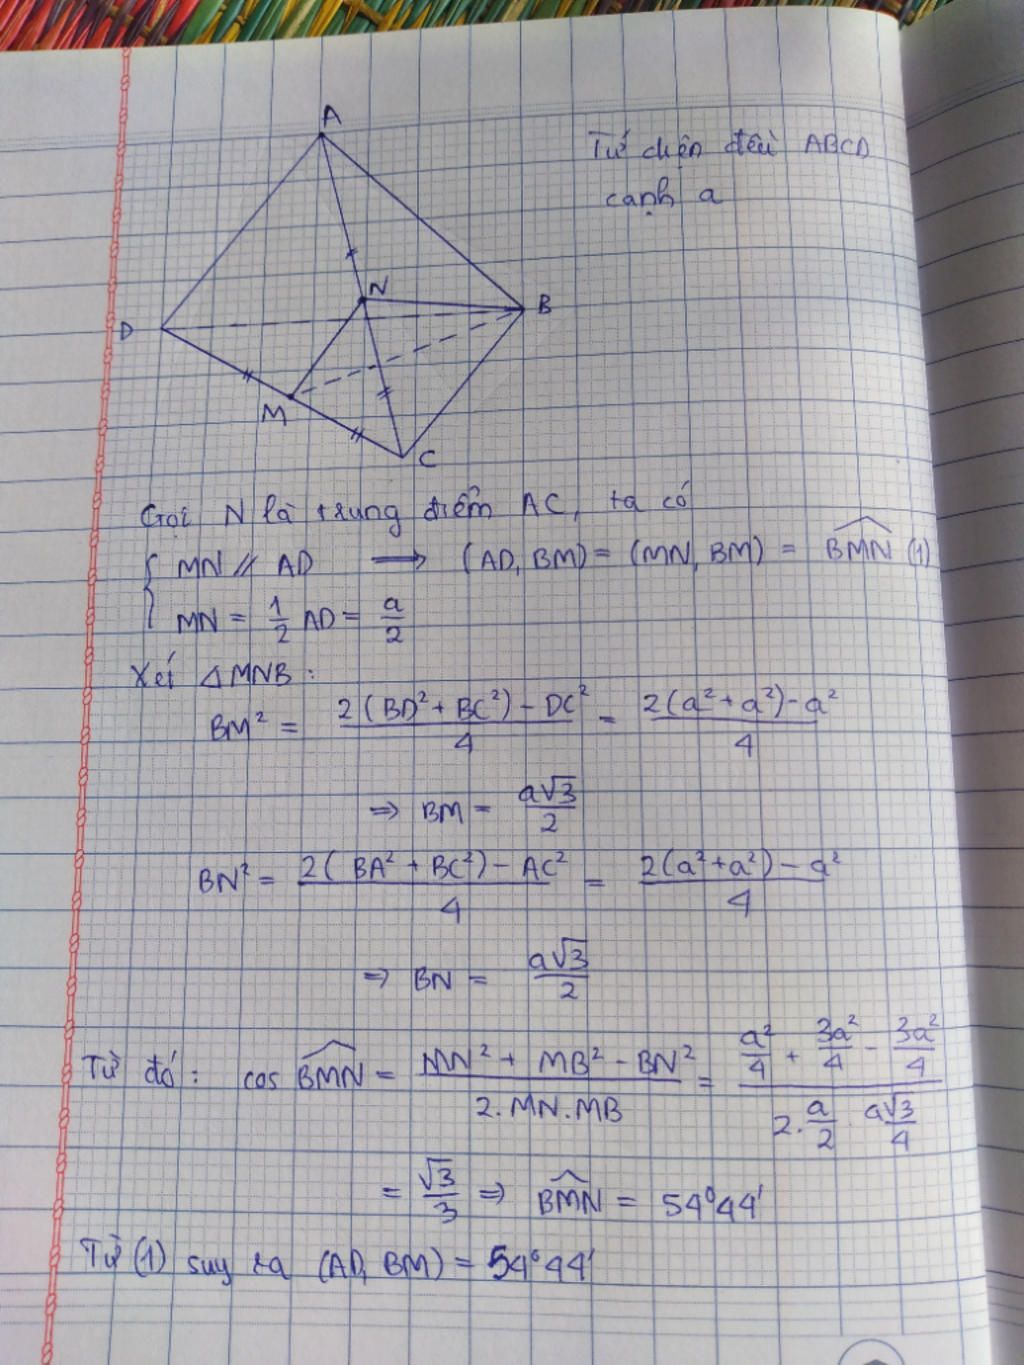 A
Tứ diện đều ABCD
cạnh a
N
B
D
M
C
Gọi N là trung điểm AC, ta có
{ MN // AD → (AD, BM) = (MN, BM) = \widehat{BMN} (1)
MN = \frac{1}{2} AD = \frac{a}{2}
Xét △MNB:
BM² = \frac{2(BD² + BC²) - DC²}{4} = \frac{2(a² + a²) - a²}{4}
⇒ BM = \frac{a√3}{2}
BN² = \frac{2(BA² + BC²) - AC²}{4} = \frac{2(a² + a²) - a²}{4}
⇒ BN = \frac{a√3}{2}
Từ đó: cos \widehat{BMN} = \frac{MN² + MB² - BN²}{2.MN.MB} = \frac{\frac{a²}{4} + \frac{3a²}{4} - \frac{3a²}{4}}{2.\frac{a}{2}.\frac{a√3}{4}}
= \frac{√3}{3} ⇒ \widehat{BMN} = 54°44'
Từ (1) suy ra (AD, BM) = 54°44'